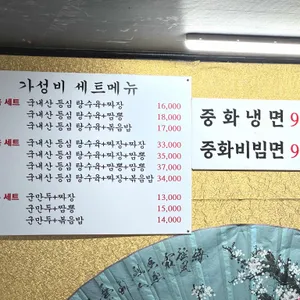 가성비 세트메뉴
세트 국내산 등심 탕수육+짜장 16,000
국내산 등심 탕수육+짬뽕 18,000
국내산 등심 탕수육+볶음밥 17,000
세트 국내산 등심 탕수육+짜장+짜장 33,000
국내산 등심 탕수육+짜장+짬뽕 35,000
국내산 등심 탕수육+짬뽕+짬뽕 37,000
국내산 등심 탕수육+짜장+볶음밥 34,000
세트 군만두+짜장 13,000
군만두+짬뽕 15,000
군만두+볶음밥 14,000
중화냉면 9
중화비빔면 9